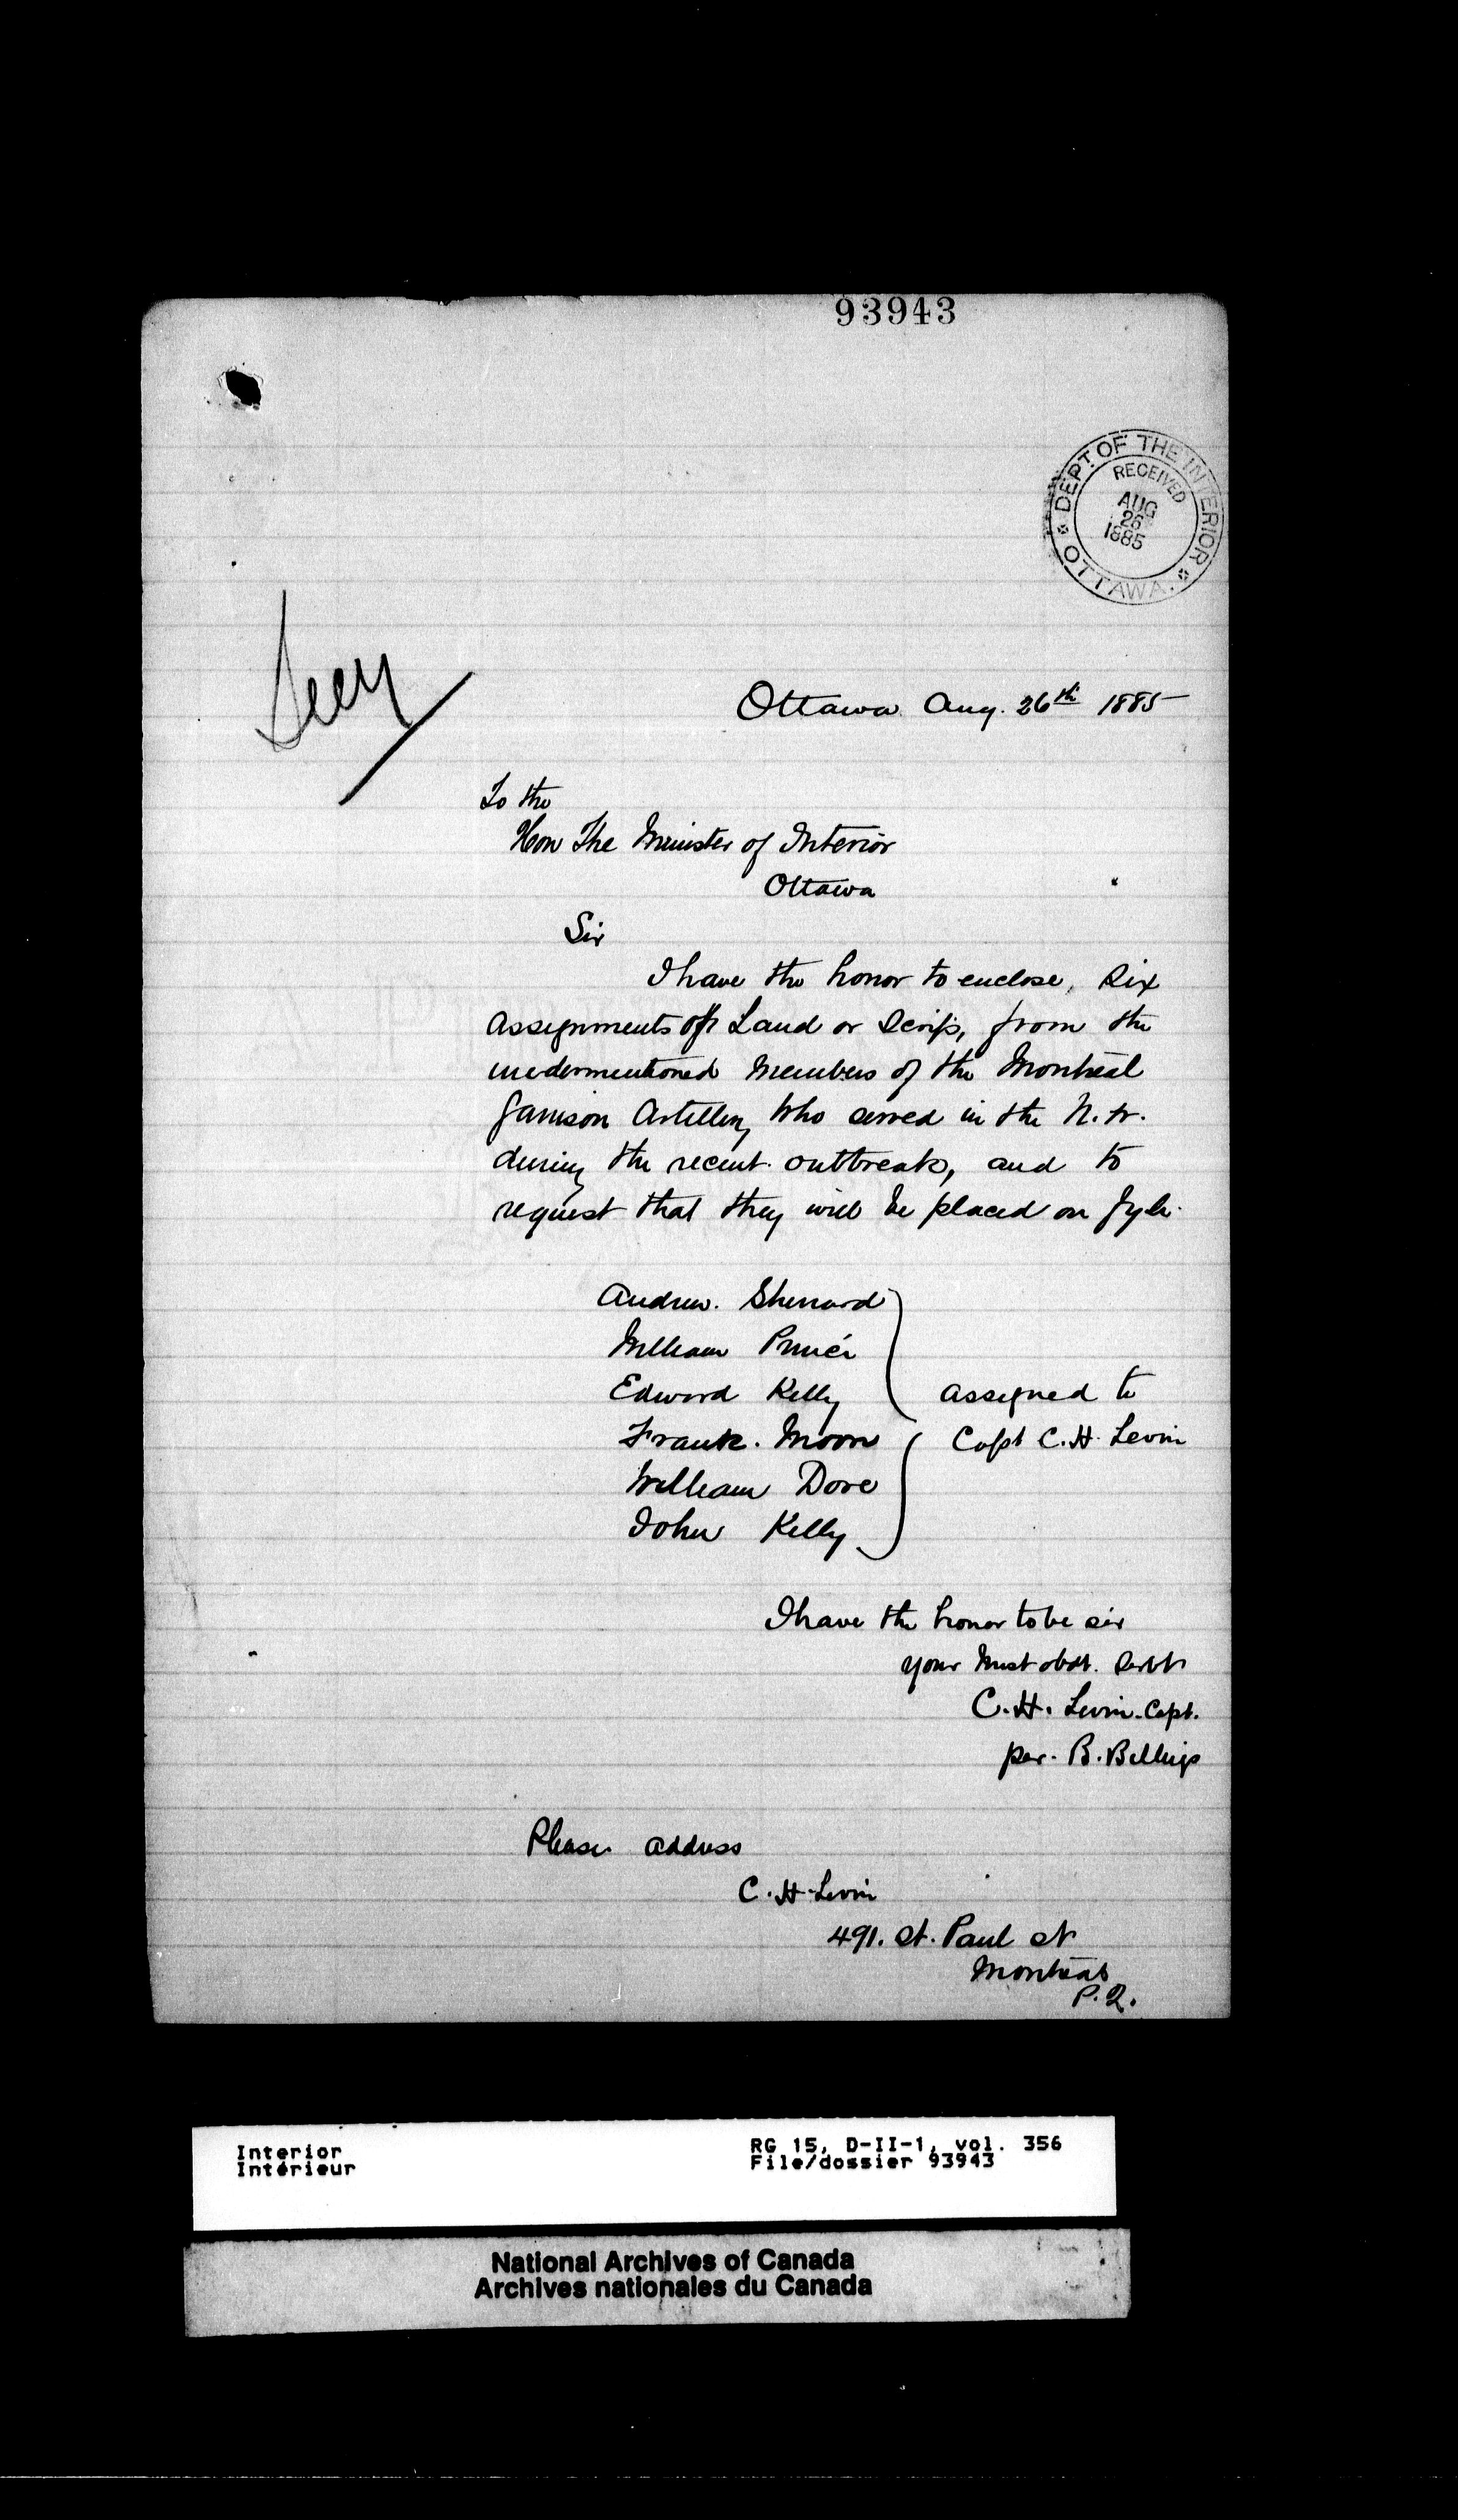 93943
DEPT. OF THE INTERIOR
RECEIVED
AUG
26
1885
OTTAWA.
Secy
Ottawa Aug. 26th 1885
To the
Hon The Minister of Interior
Ottawa
Sir
I have the honor to enclose, Six
assignments of Land or Scrip, from the
undermentioned Members of the Montreal
Garrison Artillery who served in the N.W.
during the recent outbreak, and to
request that they will be placed on fyle.
Andrew. Sherrard
William
Edward Kelly assigned to
Frank. Moon Capt C.H. Levin
William Dove
John Kelly
I have the honor to be sir
your most obdt. Servt
C.H. Levin. Capt.
per. B. Billings
Please address
C.H. Levin
491. St. Paul St
Montreal
P.Q.
Interior
Intérieur
RG 15, D-II-1, vol. 356
File/dossier 93943
National Archives of Canada
Archives nationales du Canada